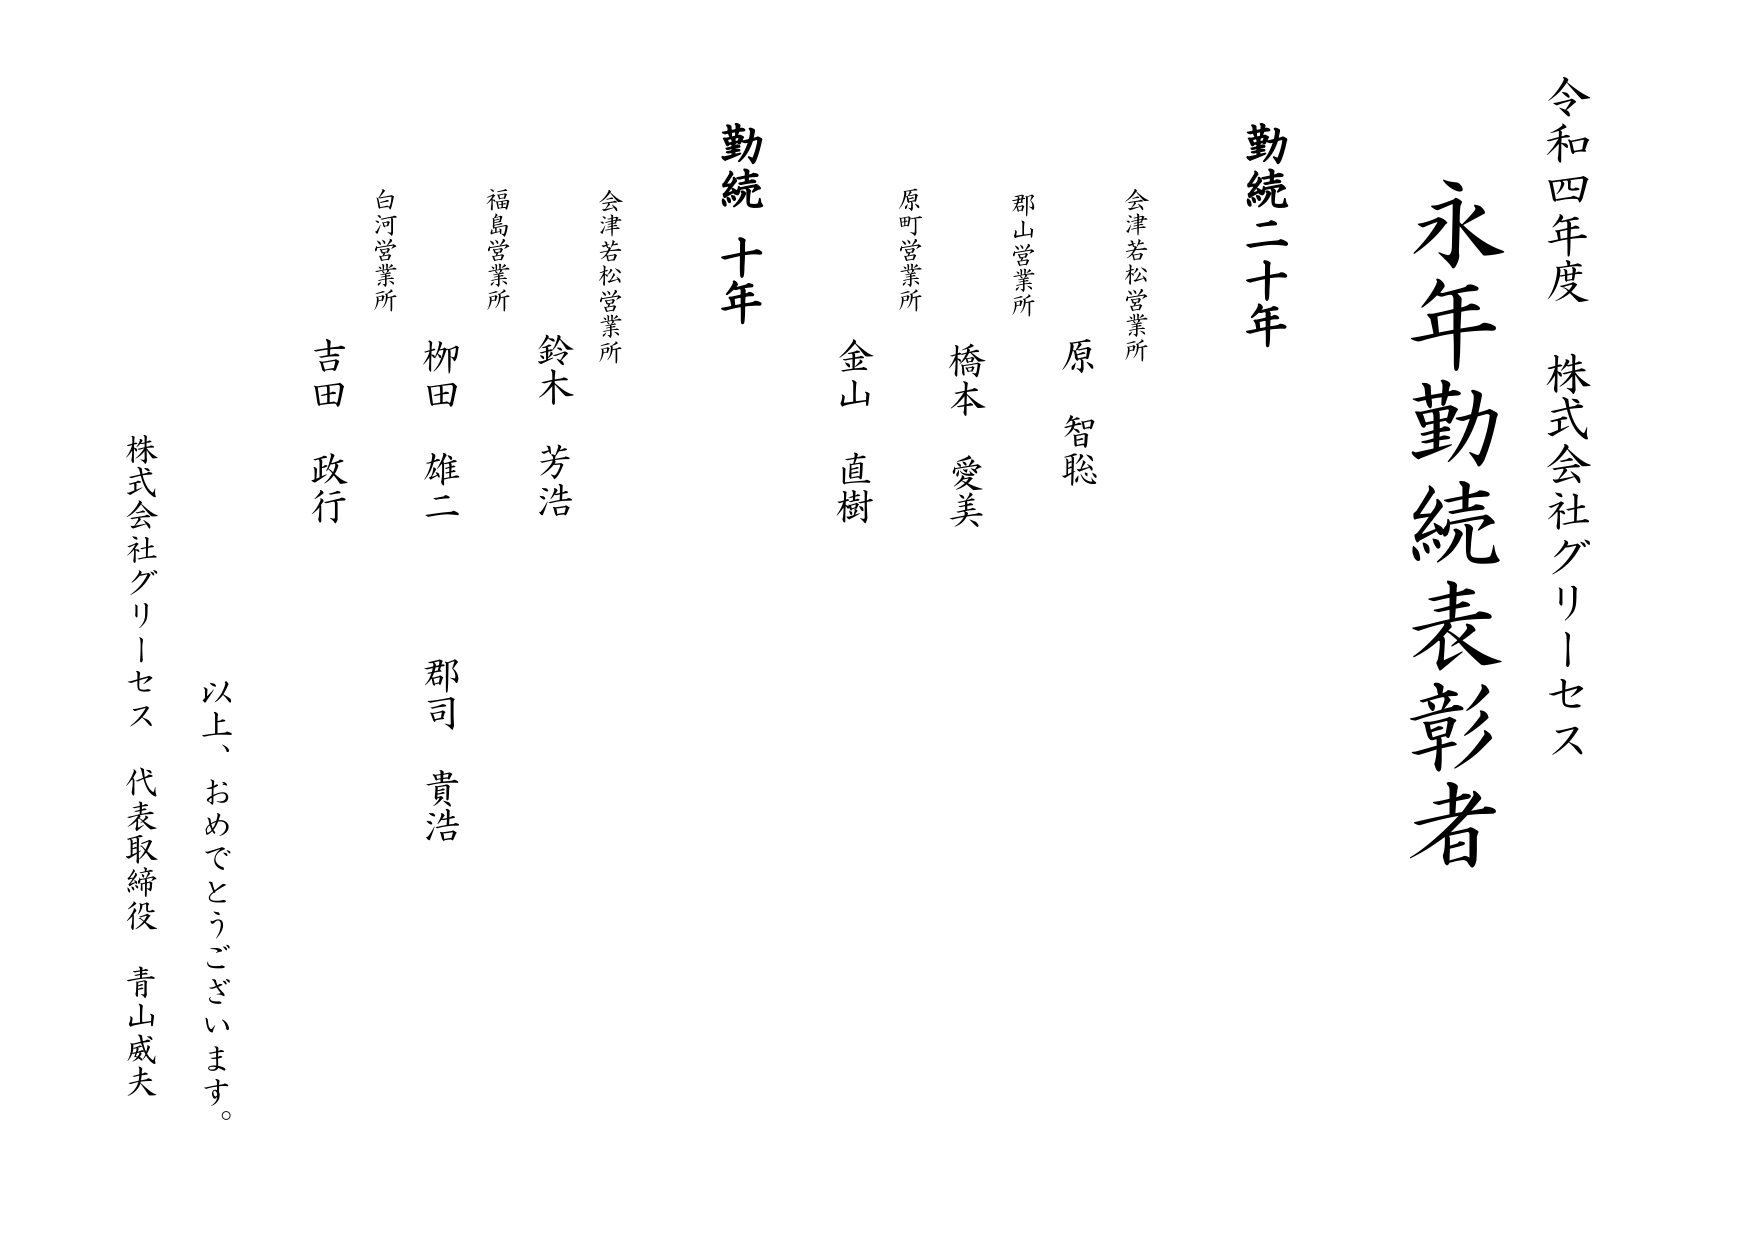 令和四年度　株式会社グリーセス
永年勤続表彰者
勤続二十年
会津若松営業所
原　智聡
郡山営業所
橋本　愛美
原町営業所
金山　直樹
勤続　十年
会津若松営業所
鈴木　芳浩
福島営業所
栁田　雄二　　　郡司　貴浩
白河営業所
吉田　政行
以上、おめでとうございます。
株式会社グリーセス　代表取締役　青山威夫